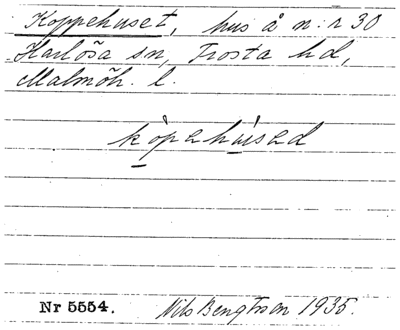 Koppehuset, hus å n:r 30
Harlösa sn, Frosta hd,
Malmöh. l.
kòpehùsed
Nr 5554. Nils Bengtsson 1935.